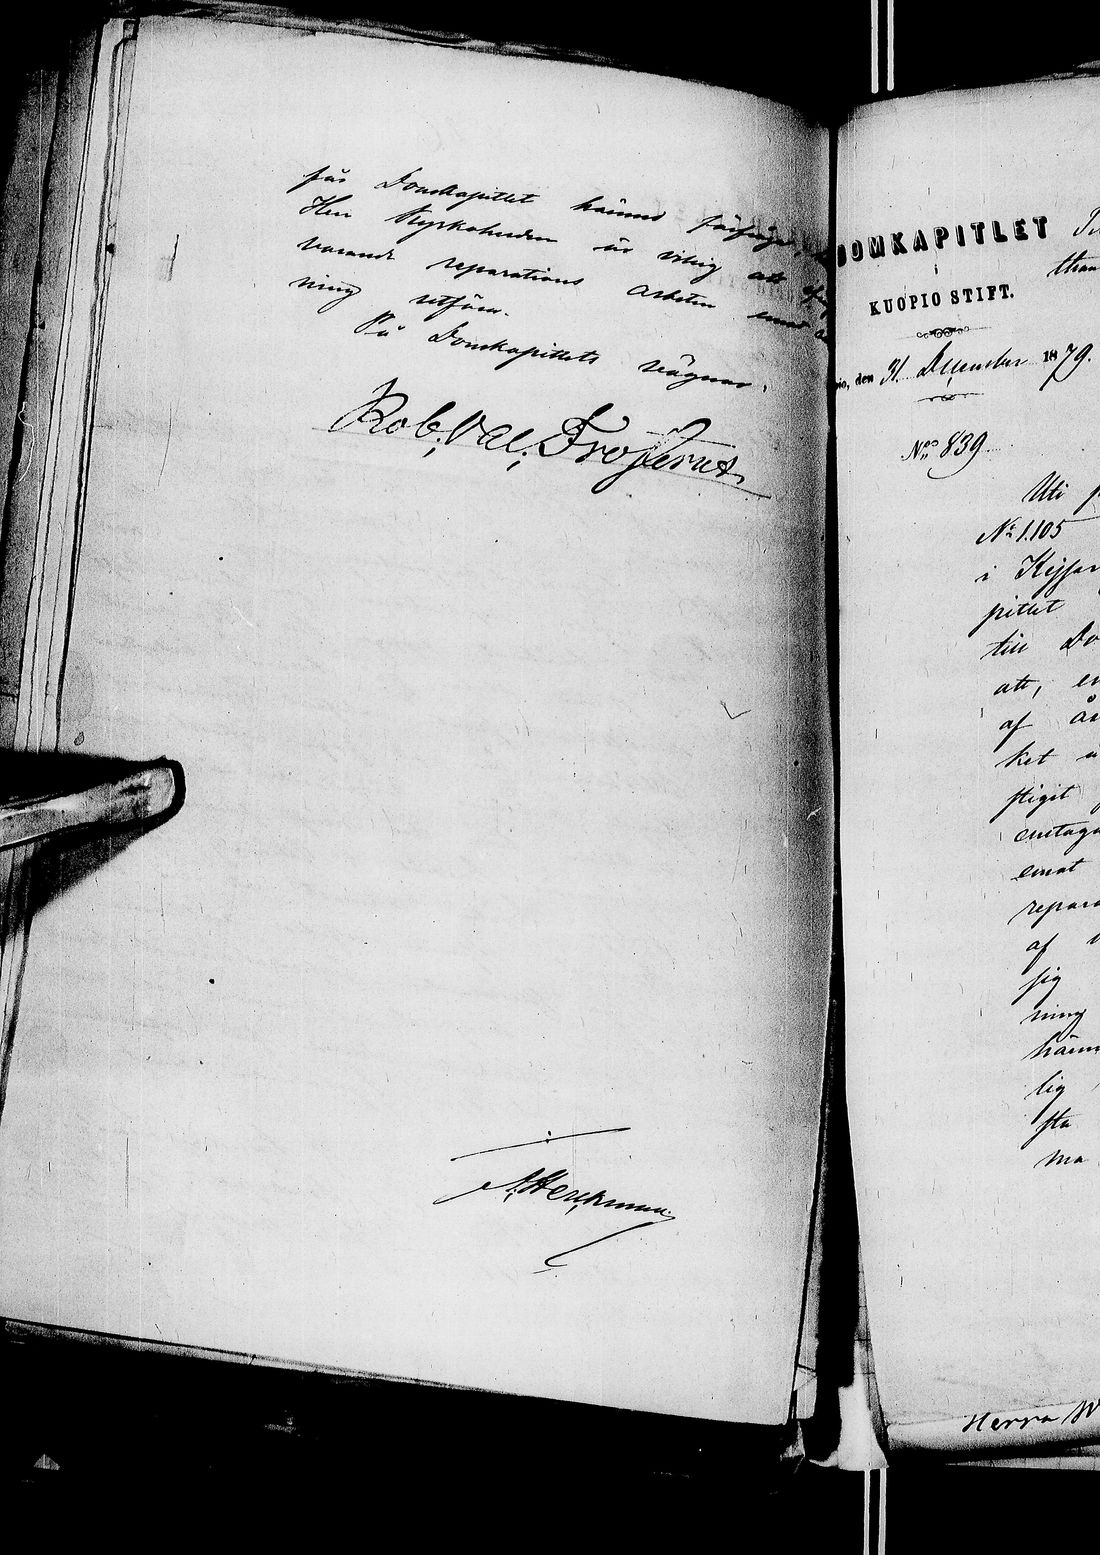 får Domkapitlet härmed förfråga,
Herr Kyrkoherden är villig att
varande reparations arbeten emot
ning utföra.
På Domkapitlets vägnar,
Rob. Val. Frosterus
A. Herckman
DOMKAPITLET
i
KUOPIO STIFT.
den 31 December 1879.
N:o 839
Uti
N:o 1,105
i
pitlet
till Do
att, en
af
ket
stigit
emottag
emot
repara
af
sig
ning
härm
lig
sta
ma
Herra